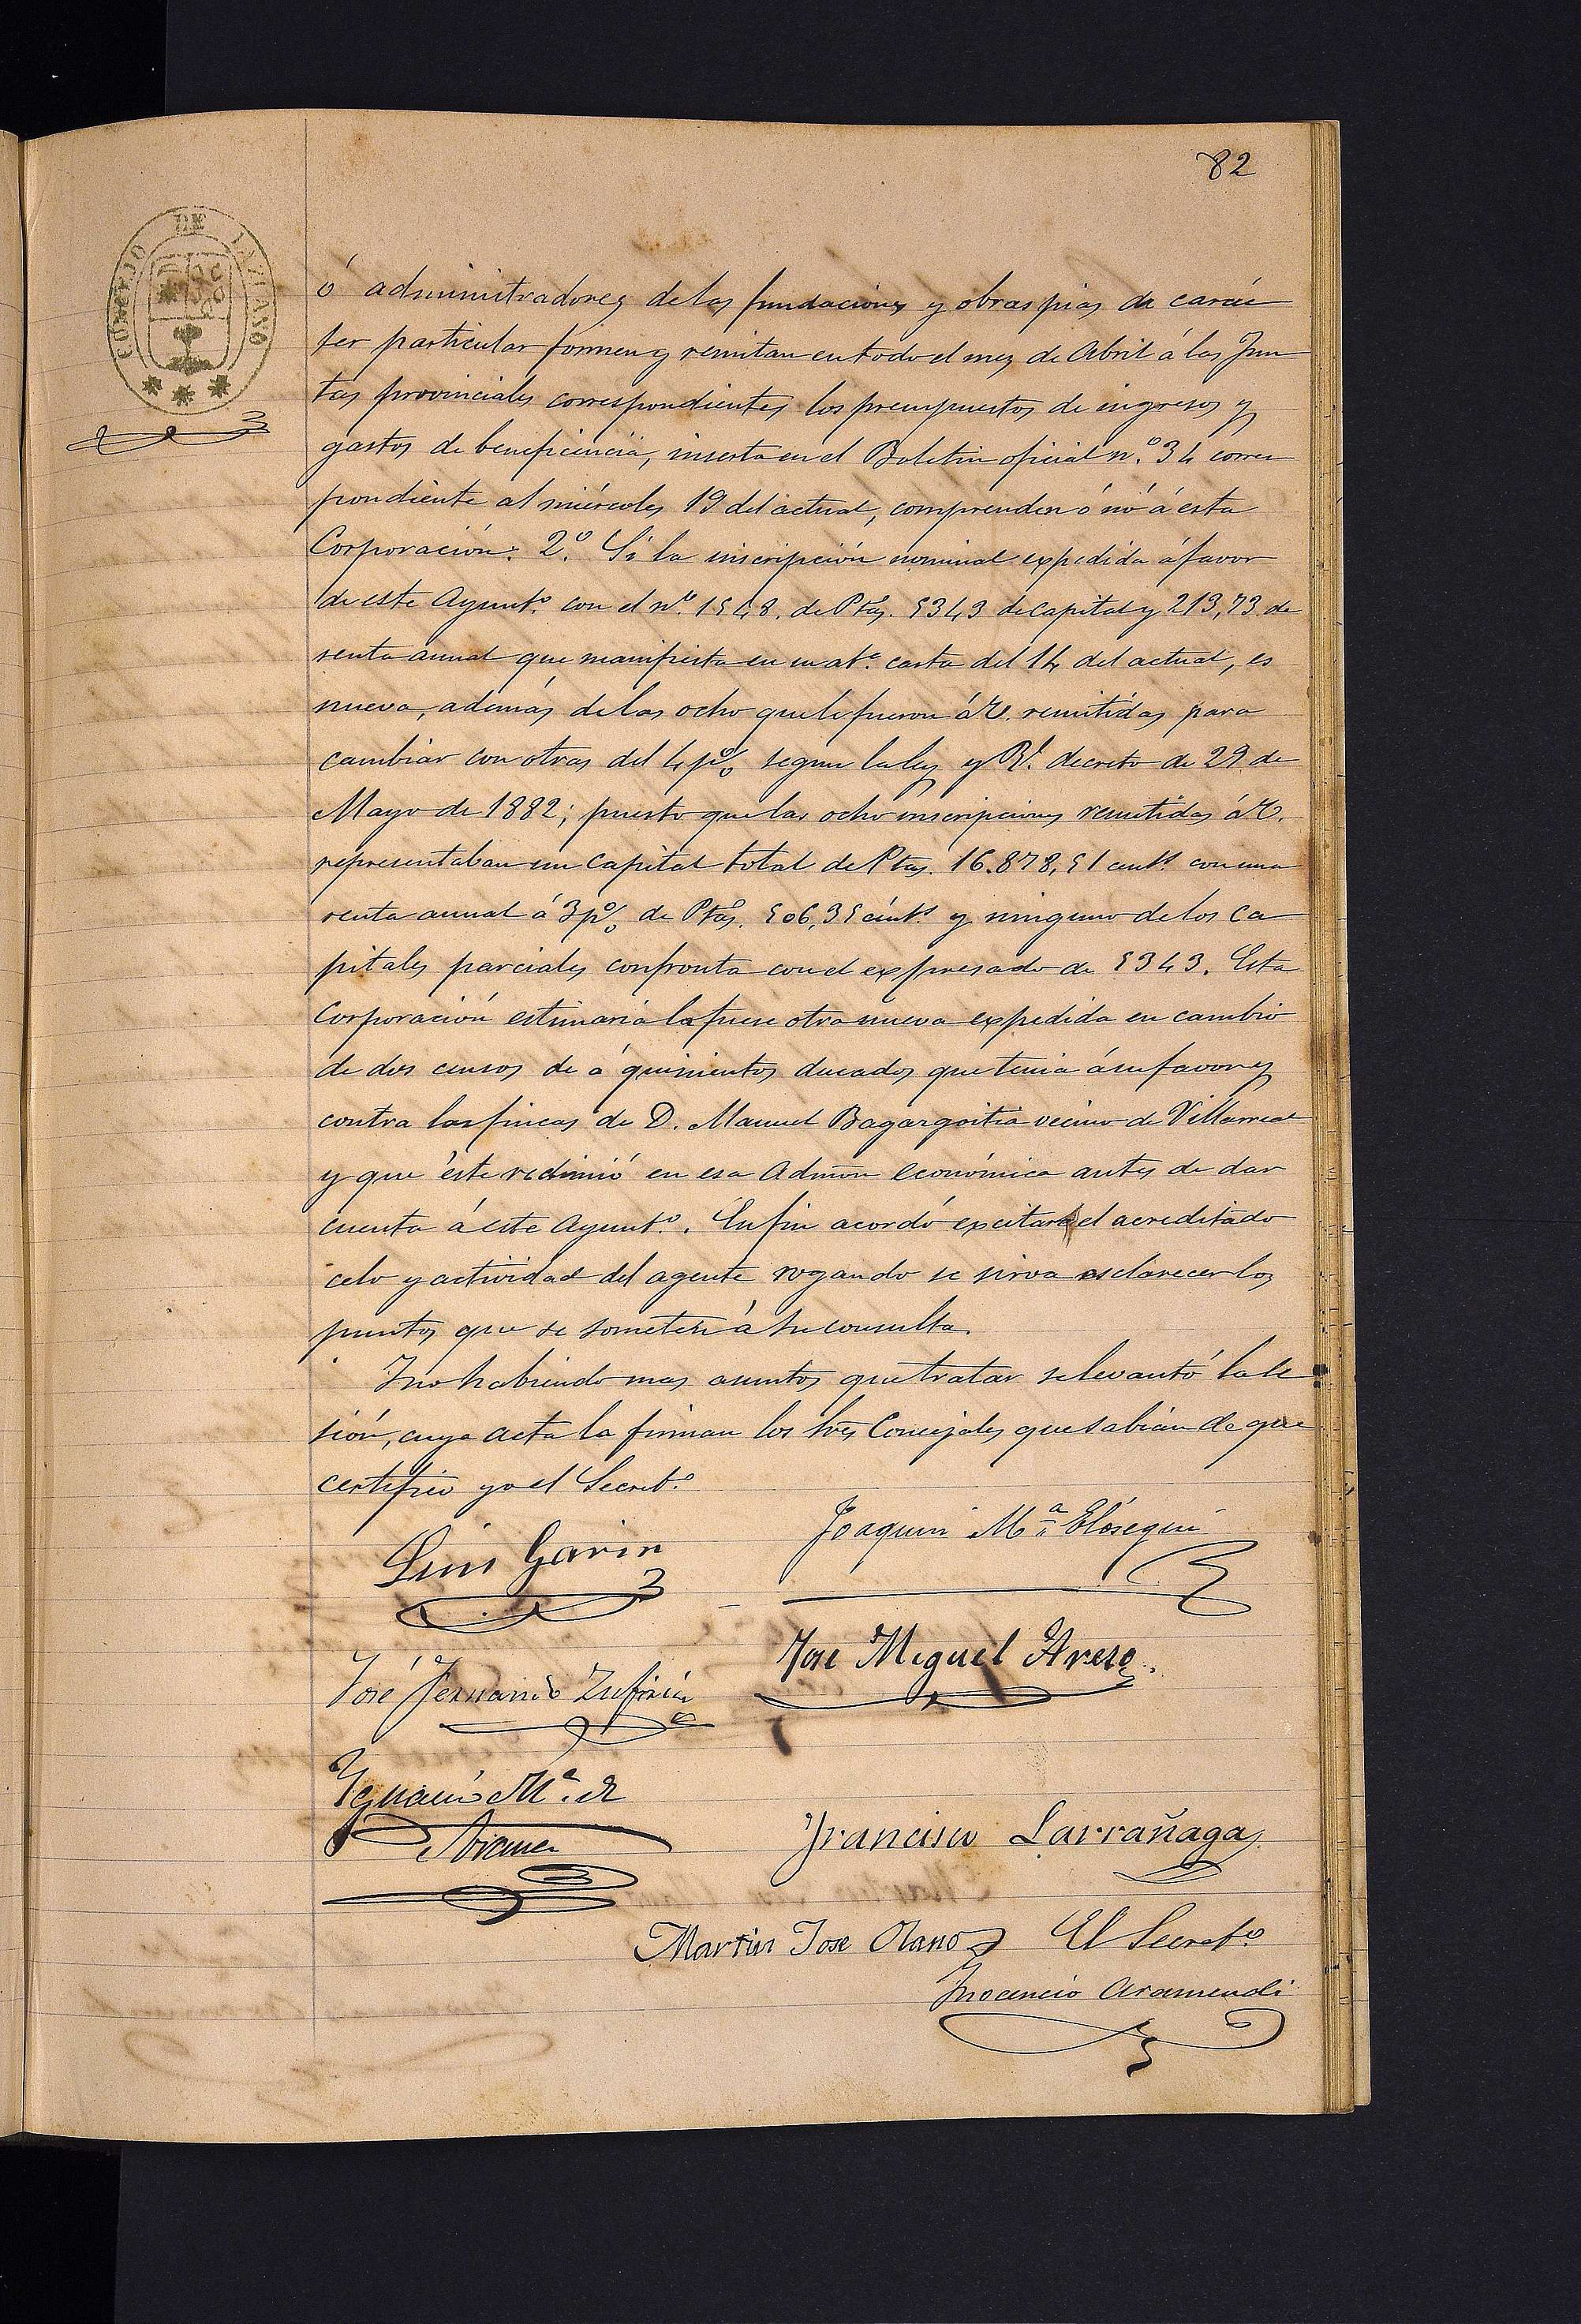 82
CONCEJO DE LAZCANO
ó administradores de las fundaciones y obras pias de carác
ter particular formen y remitan en todo el mes de Abril á las Jun
tas provinciales correspondientes los presupuestos de ingresos y
gastos de beneficencia, inserta en el Boletin oficial n.º 34 corres
pondiente al miércoles 19 del actual, comprenden ó nó á esta
Corporación: 2.º Si la inscripción nominal expedida á favor
de este Ayunt.º con el n.º 1548. de Ptas. 5343 de capital y 213,73 de
renta anual que manifiesta en su at.ª carta del 14 del actual, es
nueva, además de las ocho que le fueron á V. remitidas para
cambiar con otras del 4 p% segun la ley y Rl. decreto de 29 de
Mayo de 1882; puesto que las ocho inscripciones remitidas á V.
representaban un capital total de Ptas. 16.878,51 cents. con una
renta anual á 3 p% de Ptas. 506,35 cénts. y ninguno de los ca
pitales parciales confronta con el expresado de 5343. Esta
Corporación estimaria la fuese otra nueva expedida en cambio
de dos censos de á quinientos ducados que tenia á su favor y
contra las fincas de D. Manuel Bagazgoitia vecino de Villarreal
y que éste redimió en esa Admon económica antes de dar
cuenta á este Ayunt.º. En fin acordó excitar el acreditado
celo y actividad del agente rogando se sirva esclarecer los
puntos que se someten á su consulta.
Y no habiendo mas asuntos que tratar se levantó la se
sión, cuya acta la firman los Sres Concejales que sabian de que
certifico yo el Secret.º
Luis Garin
Joaquin M.ª Elósegui
José Fernando Zufiria
Jose Miguel Areso
Ignacio M.ª de
Francisco Larrañaga
Martin Jose Olano
El Secret.º
Inocencio Aramendi